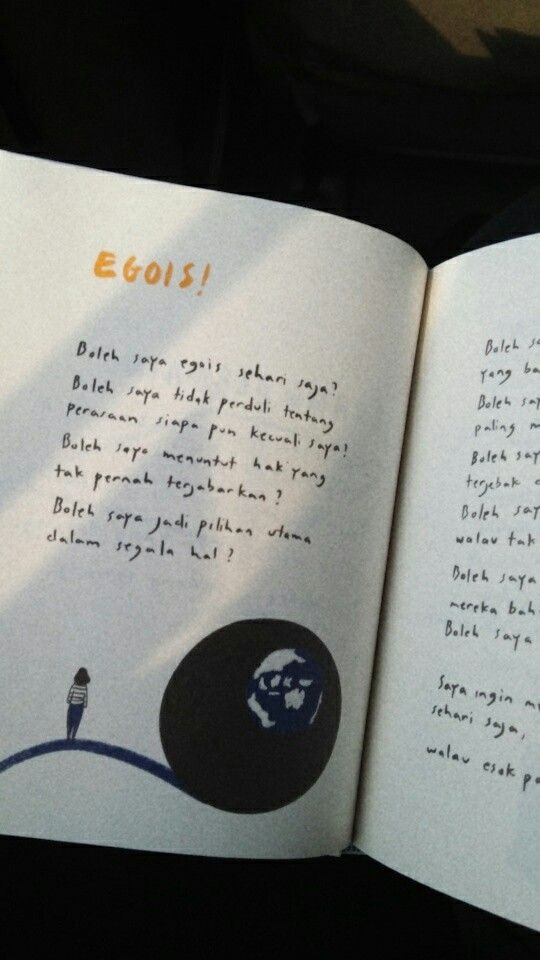 EGOIS!
Boleh saya egois sehari saja?
Boleh saya tidak perduli tentang
perasaan siapa pun kecuali saya?
Boleh saya menuntut hak yang
tak pernah terjabarkan?
Boleh saya jadi pilihan utama
dalam segala hal?
Boleh
yang
Boleh
paling
Boleh
terjebak
Boleh
walau tak
Boleh saya
mereka
Boleh saya
Saya ingin
sehari saja,
walau esok